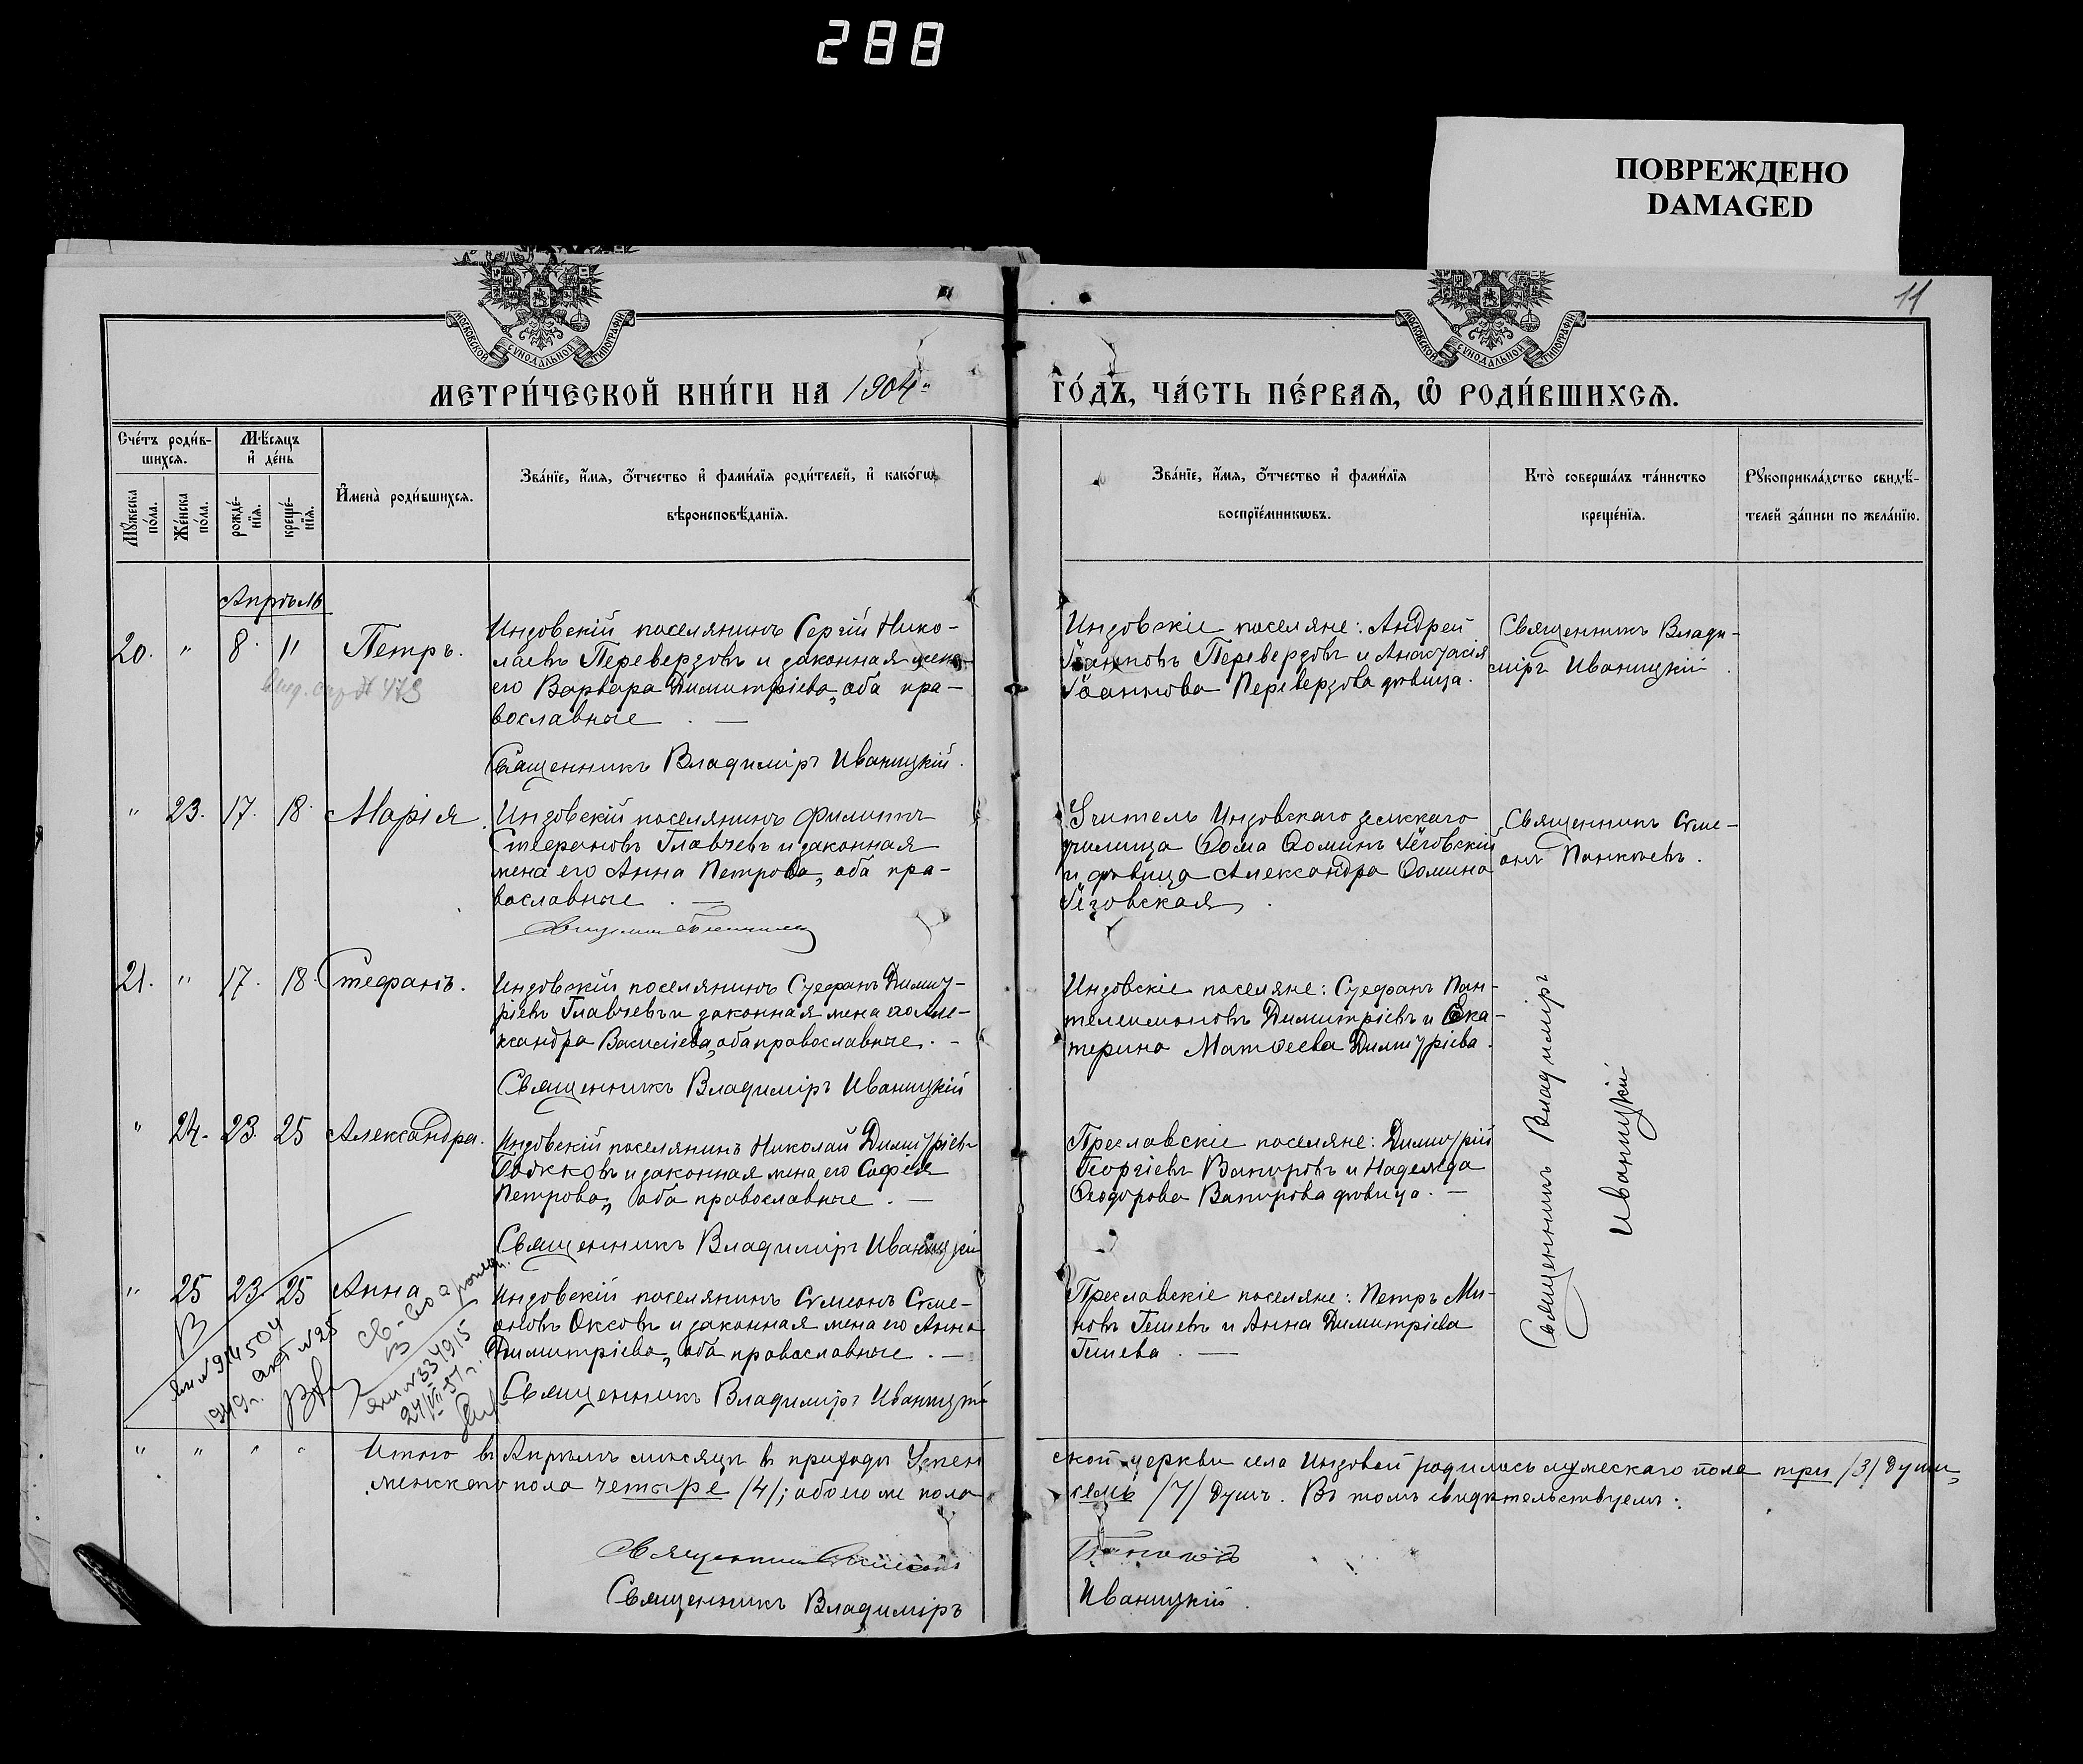 288
ПОВРЕЖДЕНО
DAMAGED
11
МОСКОВСКОЙ СѴНОДАЛЬНОЙ ТИПОГРАФІИ
МОСКОВСКОЙ СѴНОДАЛЬНОЙ ТИПОГРАФІИ
МЕТРИ́ЧЕСКОЙ КНИ́ГИ НА 1904
ГО́ДЪ, ЧА́СТЬ ПЕ́РВАѦ, Ѡ҆ РОДИ́ВШИХСѦ.
Сче́тъ роди́в-
шихсѧ.
Мѣ́сѧцъ
и҆ де́нь
Мꙋ́жеска
по́ла.
Же́нска
по́ла.
рожде́-
нїѧ.
креще́-
нїѧ.
И҆мена̀ роди́вшихсѧ.
Зва́нїе, и҆́мѧ, ѻ҆́тчество и҆ фами́лїѧ роди́телей, и҆ како́гѡ
вѣроисповѣ́данїѧ.
Зва́нїе, и҆́мѧ, ѻ҆́тчество и҆ фами́лїѧ
воспрїе́мникѡвъ.
Кто̀ соверша́лъ та́инство
креще́нїѧ.
Рꙋкоприкла́дство свидѣ́-
телей за́писи по жела́нїю.
Апрѣль
20. " 8. 11 Петръ.
Индовскій поселянинъ Сергій Нико-
лаевъ Перевердовъ и законная жена
его Варвара Димитріева, оба пра-
вославные . —
Священникъ Владиміръ Иваницкій.
Индовскіе поселяне: Андрей
Іоанновъ Перевердовъ и Анастасія
Іоаннова Перевердова дѣвица.
Священникъ Влади-
міръ Иваницкій
№ 473
" 23. 17. 18. Марія.
Индовскій поселянинъ Филиппъ
Стефановъ Главчевъ и законная
жена его Анна Петрова, оба пра-
вославные . —
Учитель Индовскаго земскаго
училища Ѳома Ѳоминъ
и дѣвица Александра Ѳомина
Священникъ Симе-
онъ
21. " 17. 18. Стефанъ.
Индовскій поселянинъ Стефанъ Димит-
ріевъ Главчевъ и законная жена его Але-
ксандра Василіева, оба православные. —
Священникъ Владиміръ Иваницкій
Индовскіе поселяне: Стефанъ Пан-
телеимоновъ Димитріевъ и Ека-
терина Матѳеева Димитріева.
Священникъ Владиміръ
Иваницкій
" 24. 23. 25 Александра.
Индовскій поселянинъ Николай Димитріевъ
и законная жена его Софія
Петрова, оба православные . —
Священникъ Владиміръ Иваницкій
Преславскіе поселяне: Димитрій
Георгіевъ Вапировъ и Надежда
Ѳеодорова Вапирова дѣвица. —
" 25 23. 25 Анна
Индовскій поселянинъ Симеонъ Симе-
оновъ Оксовъ и законная жена его Анна
Димитріева, оба православные . —
Священникъ Владиміръ Иваницкій
Преславскіе поселяне: Петръ Ми-
новъ Гешевъ и Анна Димитріева
Гешева . —
1949г. акт №25
" " " " Итого въ Апрѣлѣ мѣсяцѣ въ приходѣ Успен
ской церкви села Индовой родилось мужескаго пола три /3/ души,
женскаго пола четыре /4/; обоего же пола
семь /7/ душъ. Въ томъ свидѣтельствуемъ:
Священникъ Симеонъ
Священникъ Владиміръ
Иваницкій.